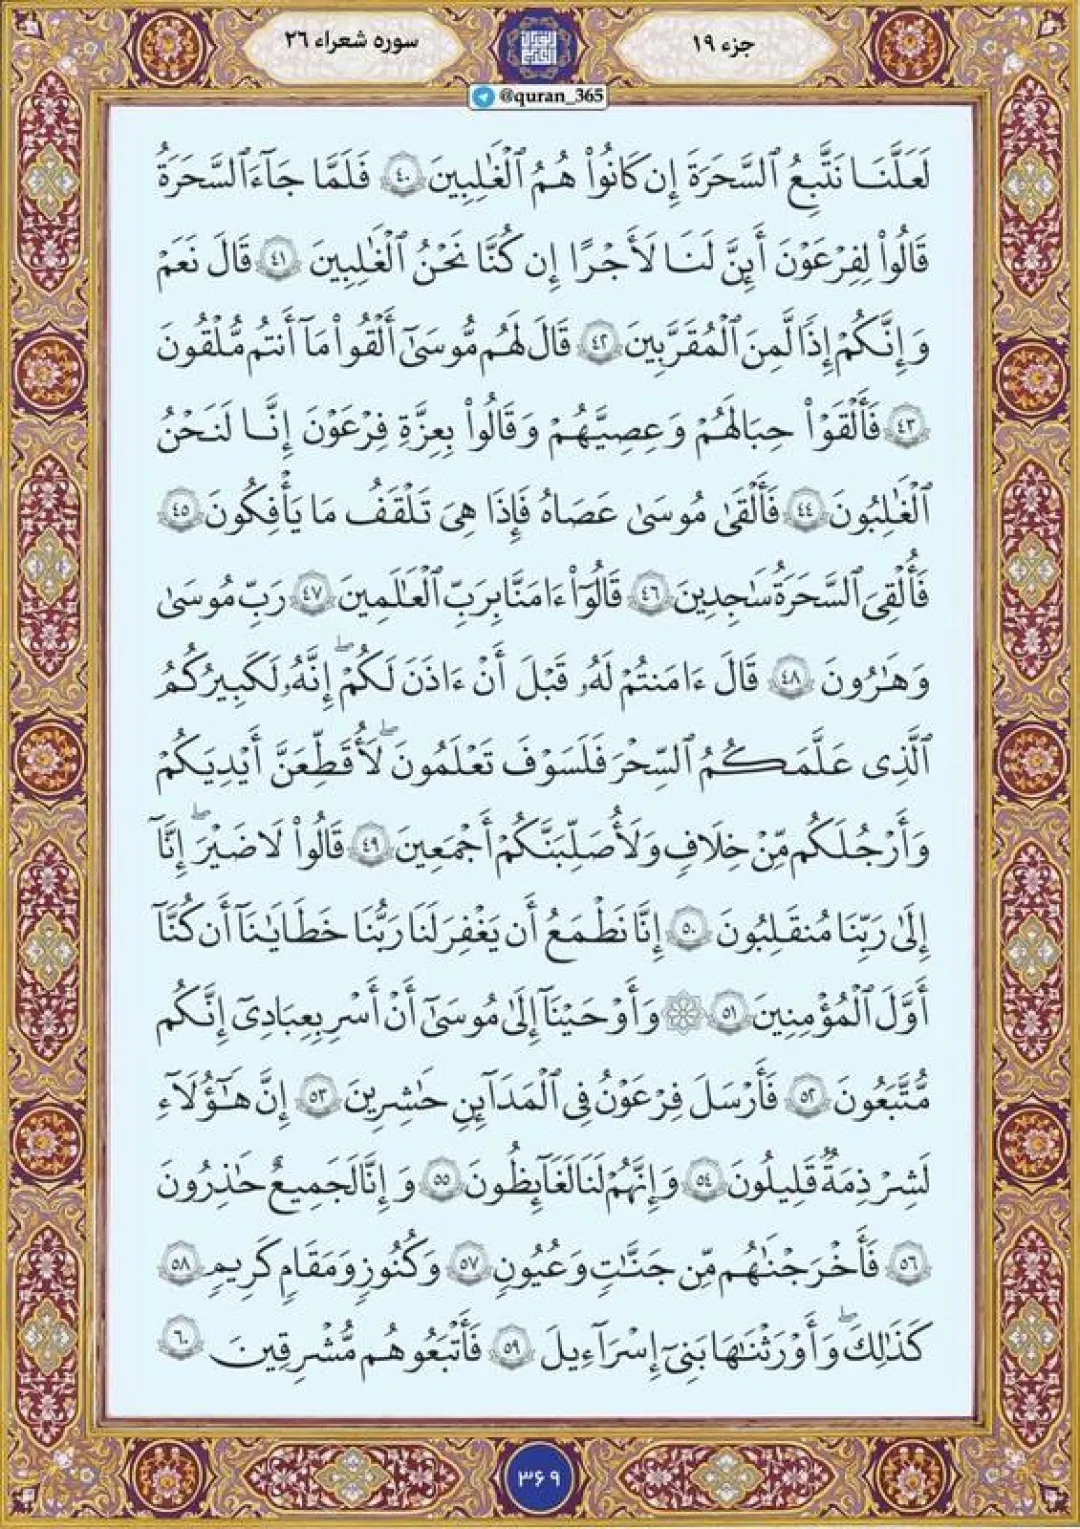 جزء ١٩
سوره شعراء ٢٦
@quran_365
لَعَلَّنَا نَتَّبِعُ ٱلسَّحَرَةَ إِن كَانُوا۟ هُمُ ٱلْغَـٰلِبِينَ ﴿٤٠﴾ فَلَمَّا جَآءَ ٱلسَّحَرَةُ
قَالُوا۟ لِفِرْعَوْنَ أَئِنَّ لَنَا لَأَجْرًا إِن كُنَّا نَحْنُ ٱلْغَـٰلِبِينَ ﴿٤١﴾ قَالَ نَعَمْ
وَإِنَّكُمْ إِذًا لَّمِنَ ٱلْمُقَرَّبِينَ ﴿٤٢﴾ قَالَ لَهُم مُّوسَىٰٓ أَلْقُوا۟ مَآ أَنتُم مُّلْقُونَ
﴿٤٣﴾ فَأَلْقَوْا۟ حِبَالَهُمْ وَعِصِيَّهُمْ وَقَالُوا۟ بِعِزَّةِ فِرْعَوْنَ إِنَّا لَنَحْنُ
ٱلْغَـٰلِبُونَ ﴿٤٤﴾ فَأَلْقَىٰ مُوسَىٰ عَصَاهُ فَإِذَا هِىَ تَلْقَفُ مَا يَأْفِكُونَ ﴿٤٥﴾
فَأُلْقِىَ ٱلسَّحَرَةُ سَـٰجِدِينَ ﴿٤٦﴾ قَالُوٓا۟ ءَامَنَّا بِرَبِّ ٱلْعَـٰلَمِينَ ﴿٤٧﴾ رَبِّ مُوسَىٰ
وَهَـٰرُونَ ﴿٤٨﴾ قَالَ ءَامَنتُمْ لَهُۥ قَبْلَ أَنْ ءَاذَنَ لَكُمْ ۖ إِنَّهُۥ لَكَبِيرُكُمُ
ٱلَّذِى عَلَّمَكُمُ ٱلسِّحْرَ فَلَسَوْفَ تَعْلَمُونَ ۖ لَأُقَطِّعَنَّ أَيْدِيَكُمْ
وَأَرْجُلَكُم مِّنْ خِلَافٍ وَلَأُصَلِّبَنَّكُمْ أَجْمَعِينَ ﴿٤٩﴾ قَالُوا۟ لَا ضَيْرَ ۖ إِنَّآ
إِلَىٰ رَبِّنَا مُنقَلِبُونَ ﴿٥٠﴾ إِنَّا نَطْمَعُ أَن يَغْفِرَ لَنَا رَبُّنَا خَطَايَـٰنَآ أَن كُنَّآ
أَوَّلَ ٱلْمُؤْمِنِينَ ﴿٥١﴾ ۞ وَأَوْحَيْنَآ إِلَىٰ مُوسَىٰٓ أَنْ أَسْرِ بِعِبَادِىٓ إِنَّكُم
مُّتَّبَعُونَ ﴿٥٢﴾ فَأَرْسَلَ فِرْعَوْنُ فِى ٱلْمَدَآئِنِ حَـٰشِرِينَ ﴿٥٣﴾ إِنَّ هَـٰٓؤُلَآءِ
لَشِرْذِمَةٌ قَلِيلُونَ ﴿٥٤﴾ وَإِنَّهُمْ لَنَا لَغَآئِظُونَ ﴿٥٥﴾ وَإِنَّا لَجَمِيعٌ حَـٰذِرُونَ
﴿٥٦﴾ فَأَخْرَجْنَـٰهُم مِّن جَنَّـٰتٍ وَعُيُونٍ ﴿٥٧﴾ وَكُنُوزٍ وَمَقَامٍ كَرِيمٍ ﴿٥٨﴾
كَذَٰلِكَ ۖ وَأَوْرَثْنَـٰهَا بَنِىٓ إِسْرَٰٓءِيلَ ﴿٥٩﴾ فَأَتْبَعُوهُم مُّشْرِقِينَ ﴿٦٠﴾
٣۶٩